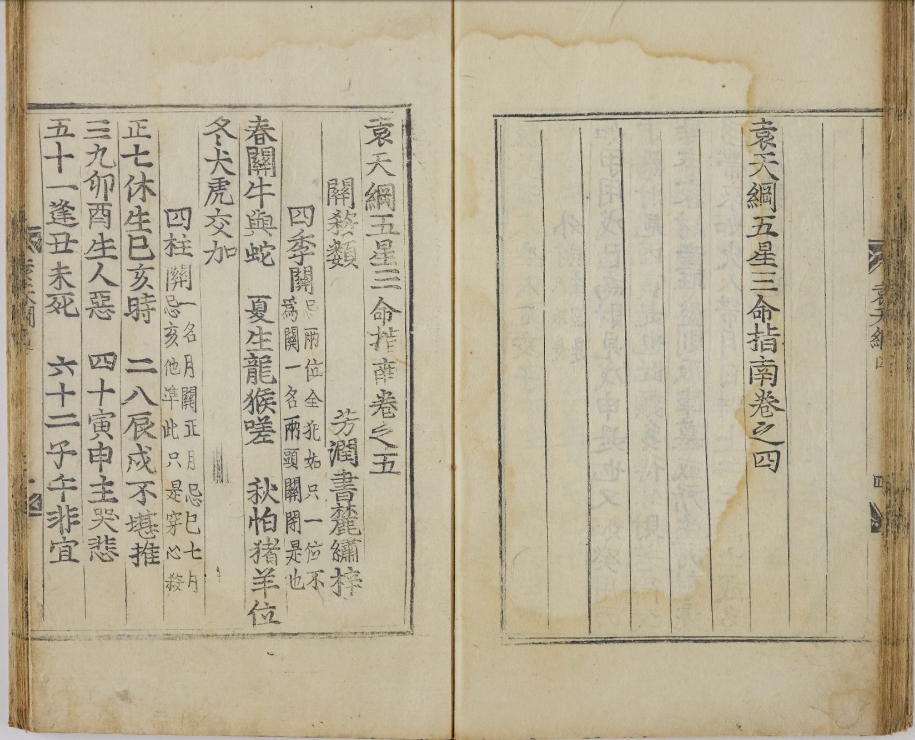 袁天綱 四
四
袁天綱五星三命指南卷之四
袁天綱五星三命指南卷之五
關殺類 芳潤書麓繡梓
四季關 忌兩位全犯如只一位不
爲關一名兩頭關閉是也
春關牛與蛇 夏生龍猴嗟 秋怕猪羊位
冬犬虎交加
四柱關 一名月關正月忌巳七月
忌亥他準此只是穿心殺
正七休生巳亥時 二八辰戌不堪推
三九卯酉生人惡 四十寅申主哭悲
五十一逢丑未死 六十二子午非宜